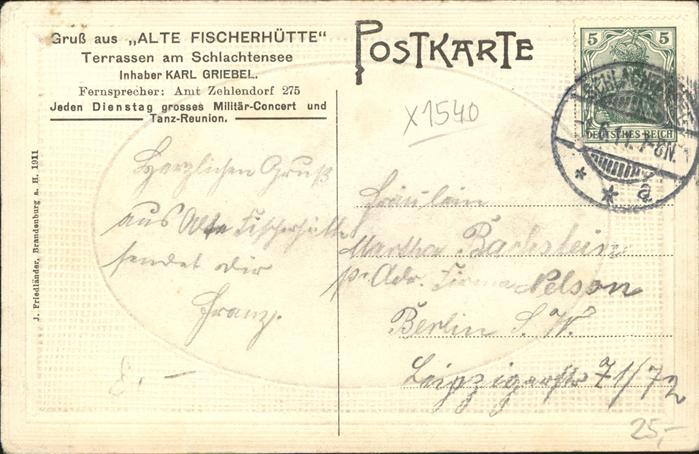 Gruß aus „ALTE FISCHERHÜTTE"
Terrassen am Schlachtensee
Inhaber KARL GRIEBEL.
Fernsprecher: Amt Zehlendorf 275
Jeden Dienstag grosses Militär-Concert und
Tanz-Reunion.
POSTKARTE
5 5
DEUTSCHES REICH
a
X1540
J. Friedländer, Brandenburg a. H. 1911
Herzlichen Gruß
aus Alte Fischerhütte
sendet dir
Franz.
8.-
Fräulein
Martha Backstein
p. Adr. Firma Nelson
Berlin S. W.
Leipzigerstr 71/72
25,-